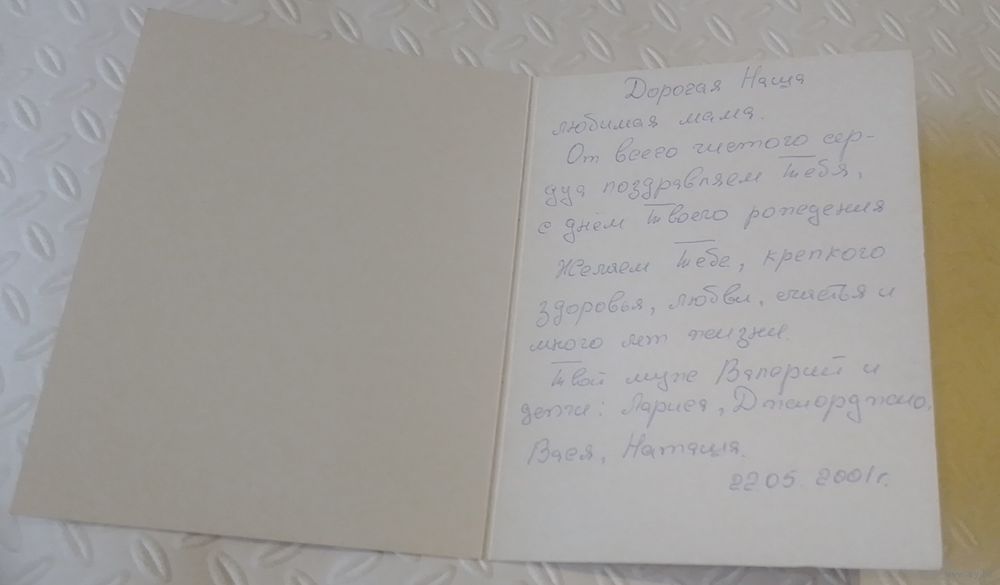 Дорогая Наша
любимая мама.
От всего чистого сер-
дца поздравляем Тебя,
с днём Твоего рождения
Желаем Тебе, крепкого
здоровья, любви, счастья и
много лет жизни.
Твой муж Валерий и
дети: Лариса, Джиорджио,
Вася, Наташа.
22.05. 2001г.